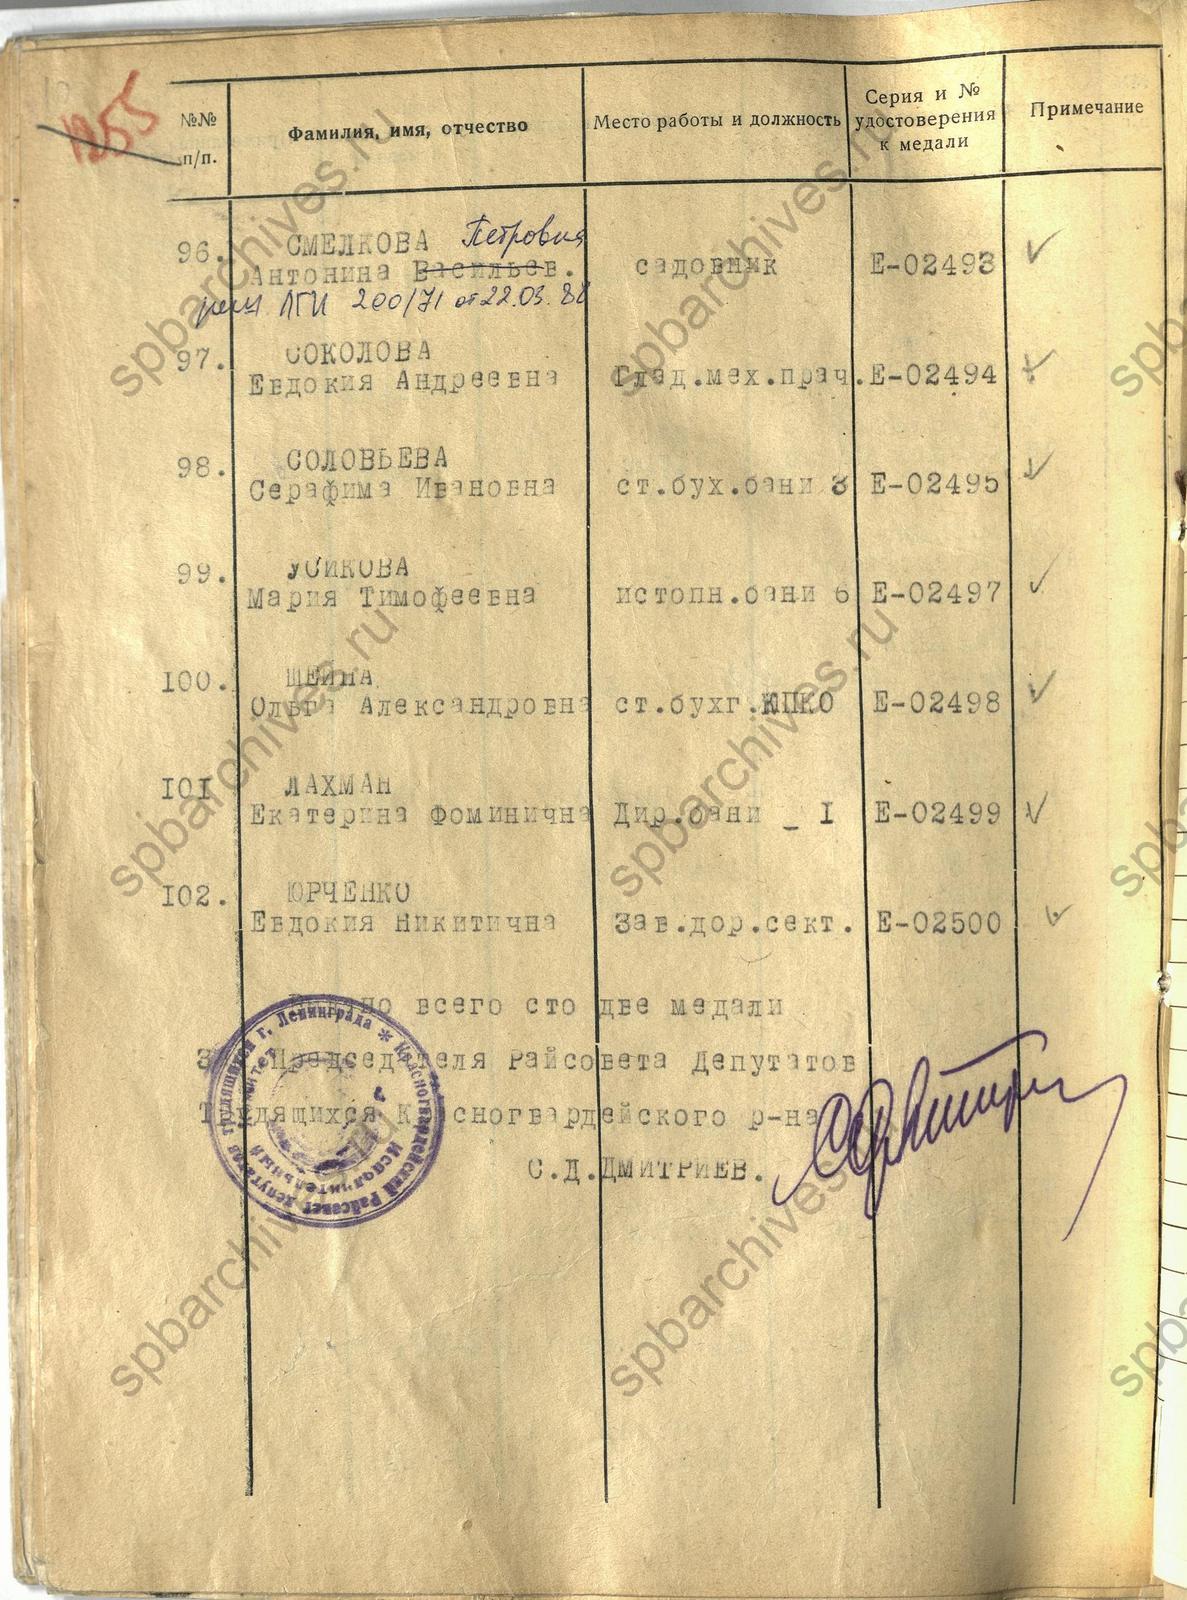 1255
№№ п/п.
Фамилия, имя, отчество
Место работы и должность
Серия и № удостоверения к медали
Примечание
96. СМЕЛКОВА Петровна
Антонина Васильев. садовник Е-02493
реш ЛГИ 200/71 от 22.03.88
97. СОКОЛОВА
Евдокия Андреевна Глад.мех.прач. Е-02494
98. СОЛОВЬЕВА
Серафима Ивановна ст.бух.бани 3 Е-02495
99. УСИКОВА
Мария Тимофеевна истопн.бани 6 Е-02497
100. ШЕИНА
Ольга Александровна ст.бухг.ЖПКО Е-02498
101 ЛАХМАН
Екатерина Фоминична Дир.бани _ I Е-02499
102. ЮРЧЕНКО
Евдокия Никитична Зав.дор.сект. Е-02500
всего сто две медали
Председателя Райсовета Депутатов
Трудящихся Красногвардейского р-на
С.Д.ДМИТРИЕВ.
Красногвардейский Райсовет депутатов трудящихся г. Ленинграда *
Исполнительный комитет
spbarchives.ru
spbarchives.ru
spbarchives.ru
spbarchives.ru
spbarchives.ru
spbarchives.ru